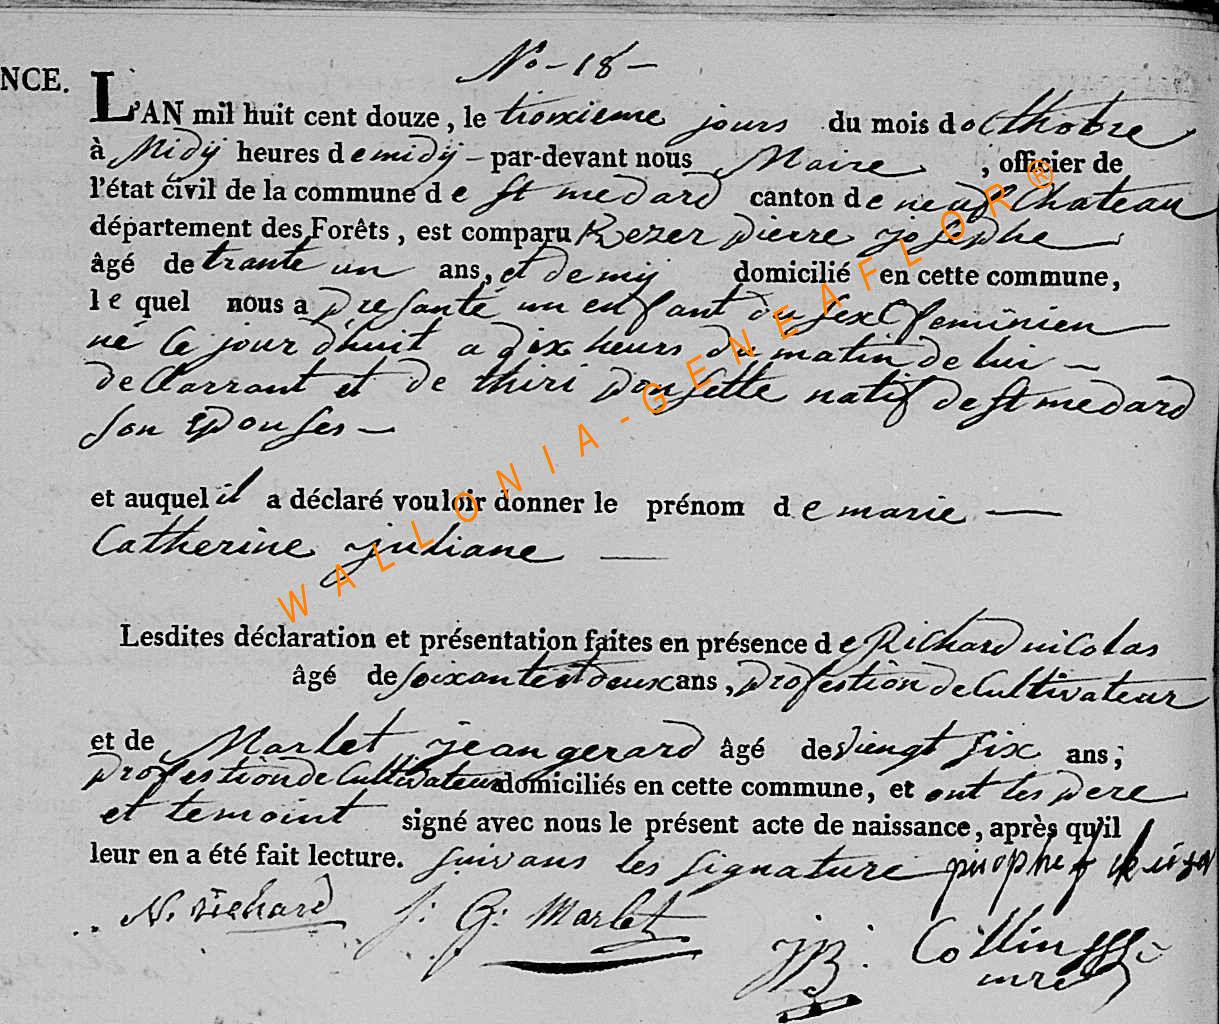 No - 18 -
NCE.
L'AN mil huit cent douze, le troixieme jours du mois d octhobre
à Midÿ heures de midÿ - par-devant nous Maire , officier de
l'état civil de la commune de st medard canton de neufchateau
département des Forêts, est comparu Kezer pierre josephe
âgé de trante un ans, et demij domicilié en cette commune,
le quel nous a presanté un enfant du sexe feminien
né ce jour d'huit a dix heurs du matin de lui -
declarrant et de thiri ponsette natif de st medard
son epouses -
et auquel il a déclaré vouloir donner le prénom de marie —
Catherine juliane —
Lesdites déclaration et présentation faites en présence de Richard nicolas
âgé de soixantest deux ans, profestion de Cultivateur
et de Marlet jean gerard âgé de viengt six ans;
profestion de Cultivateur domiciliés en cette commune, et ont les pere
et temoint signé avec nous le présent acte de naissance, après qu'il
leur en a été fait lecture. suivans les signature
N. richard j: G: Marlet
JB: Collin
mre
WALLONIA-GENEAFLOR®